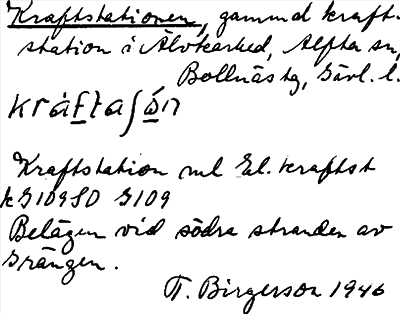 Kraftstationen, gammal kraft-
station i Älvkarhed, Alfta sn,
Bollnäs tg, Gävl. l.
kráftaʃω̇n
Kraftstation ml El. kraftst
kG109SO G109
Belägen vid södra stranden av
Grängen.
T. Birgerson 1946